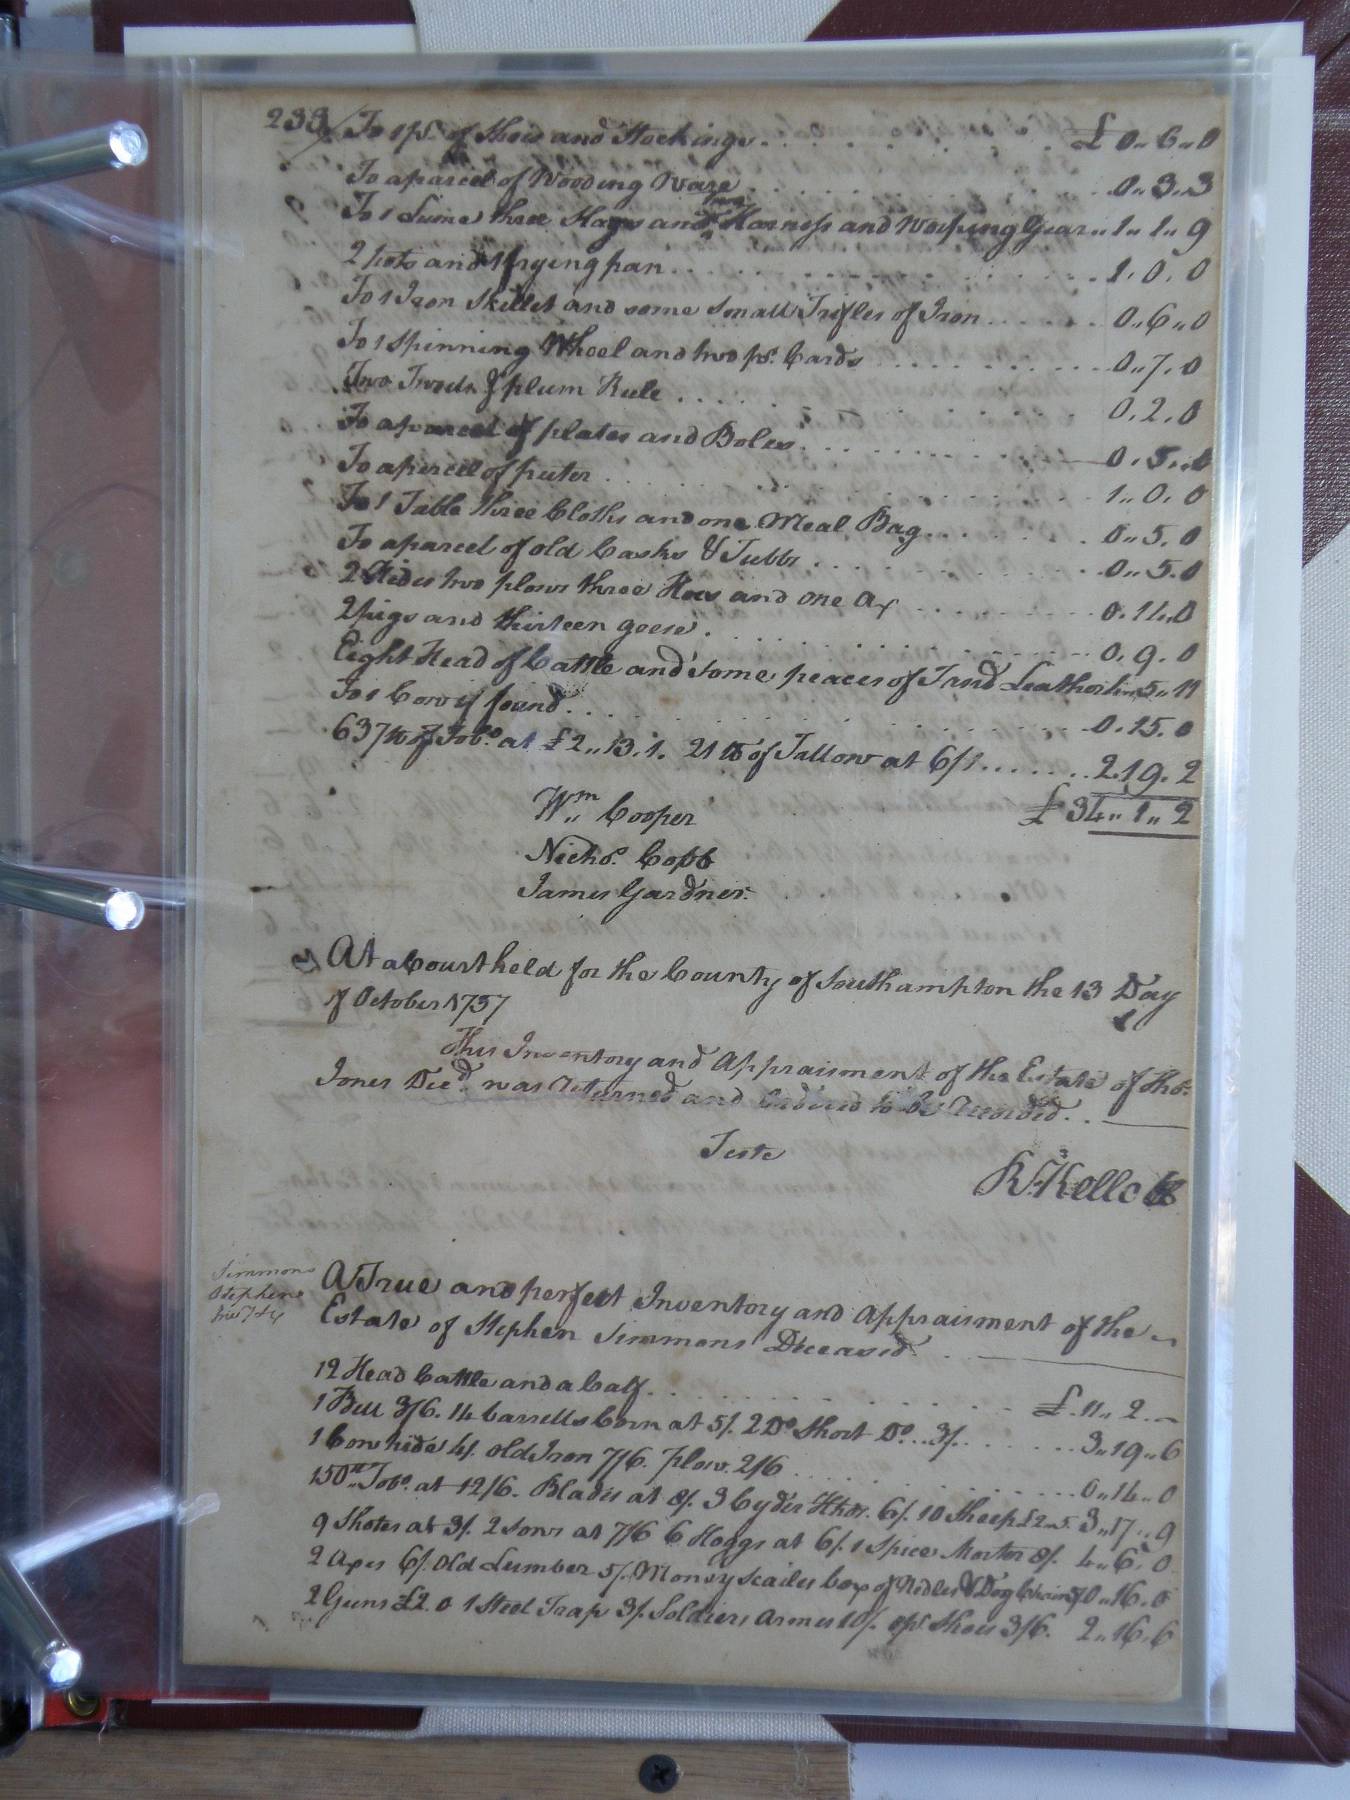 233 To 1 pr. of Shoes and Stockings . . . . £ 0,, 6,, 0
To a parcel of Wooding Ware . . . . 0,, 3,, 3
To 1 Lume three Slays and two Harness and Warping Gear ,, 1,, 1,, 9
2 pots and 1 frying pan . . . . 1. 0. 0
To 1 Iron Skillet and some Small Trifles of Iron . . . . 0,, 6,, 0
To 1 Spinning Wheel and two pr. Cards . . . . 0,, 7. 0
Two & plum Rule . . . . 0. 2. 0
To a parcel of plates and Boles . . . . 0. 5.
To a parcel of puter . . . . 1,, 0. 0
To 1 Table three Cloths and one Meal Bag . . . . 0,, 5. 0
To a parcel of old Casks & Tubbs . . . . 0,, 5. 0
2 two plows three Hoes and one Ax . . . . 0. 11,, 0
2 pigs and thirteen geese . . . . 0. 9. 0
Eight Head of Cattle and some peaces of Tand Leather 5,, 11
To 1 Cow if found . . . . 0. 15. 0
637 lb of Tobo. at £2,, 13. 1. 21 lb of Tallow at 6/1 . . . . 2. 19. 2
£ 34,, 1,, 2
Wm. Cooper
Nicho. Cobb
James Gardner
At a Court held for the County of Southampton the 13 Day
of October 1757
This Inventory and Appraisment of the Estate of Tho.
Jones Decd. was returned and Ordered to be Recorded. .
Teste
R. Kello
Simmons
Stephen
A True and perfect Inventory and Appraisment of the
Estate of Stephen Simmons Deceased.
12 Head Cattle and a Calf . . . . £. 11,, 2. –
1 Bull 3/6. 14 barrells Corn at 5/. 2 Do. Short Do. .. 3/. . . . . 3,, 19,, 6
1 Cow hide 4/. old Iron 7/6. plow. 2/6 . . . . 0,, 14,, 0
150 lb. Tobo. at 12/6. Blades at 8/. 3 Cyder 6/. 10 Sheep £2,, 5. 3,, 17,, 9
9 Shotes at 3/. 2 Sows at 7/6 6 Hoggs at 6/. 1 Spice Morter 8/. 4,, 6. 0
2 Axes 6/. old Lumber 5/. Money Scailes box of & Dog 0,, 16. 0
2 Guns £2. 0 1 Steel Trap 3/. Soldiers Armes 10/. pr. Shoes 3/6. 2,, 16. 6